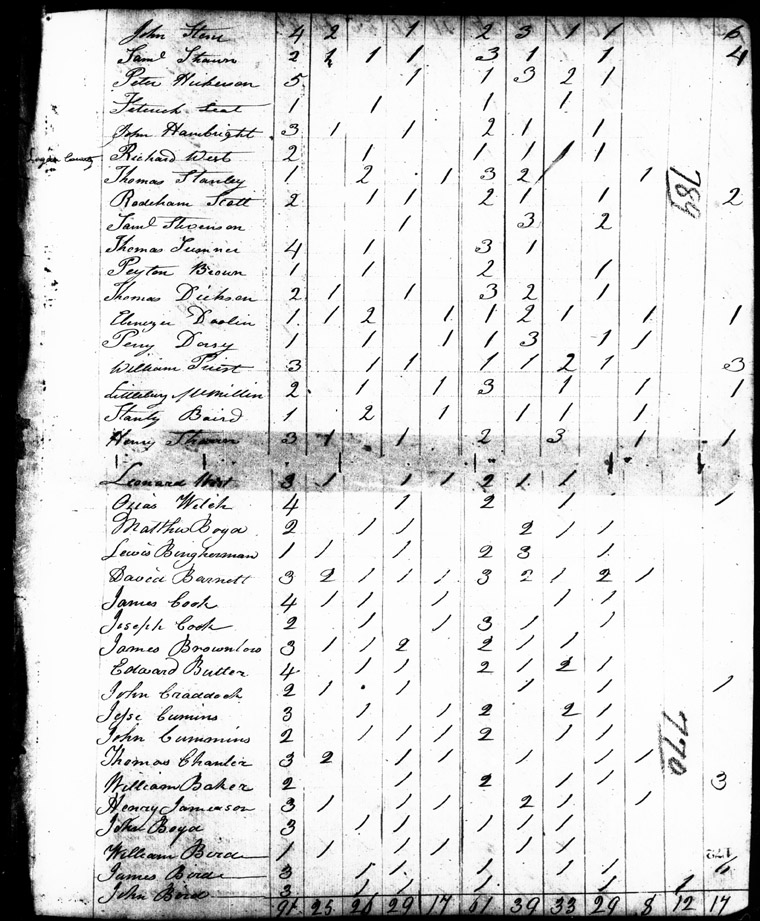 John Stone 4 2 1 2 3 1 1 6
Saml Shawn 2 2 1 1 3 1 1 4
Peter Hickerson 5 1 1 3 2 1
1 1 1 1
John Hambright 3 1 1 2 1 1
Logan County Richard West 2 1 1 1 1 1
Thomas Stanley 1 2 1 3 2 1 1
Rodeham Scott 2 1 1 2 1 1 2
789
Saml Stevenson 1 3 2
Thomas Sumner 4 1 3 1
Peyton Brown 1 1 2 1
Thomas Dickson 2 1 1 3 2 1
Ebenezer Doolin 1 1 2 1 1 2 1 1 1
Perry Dorsy 1 1 1 1 3 1 1
William Priest 3 1 1 1 1 2 1 3
Littlebury McMillin 2 1 1 3 1 1 1
Stanly Baird 1 2 1 1 1 1
Henry Shawn 3 1 1 2 3 1 1
Leonard West 3 1 1 1 2 1 1
Welch 4 1 2 1 1
Matthw Boyd 2 1 1 2 1 1
Lewis Bingherman 1 1 1 2 3 1
David Barnett 3 2 1 1 1 3 2 1 2 1
James Cook 4 1 1 1 1 1
Joseph Cook 2 1 1 3 1 1
James Brownlow 3 1 1 2 2 1 1
Edward Butler 4 1 1 2 1 2 1
John Craddock 2 1 1 1 1 1
Jesse Cumins 3 1 1 2 2 1
John Cummins 2 1 1 1 2 1 1
770
Thomas Chanler 3 2 1 1 1 1 1
William Baker 2 1 2 1 1 1 3
Henry Jameason 3 1 1 1 2 1 1
John Boyd 3 1 1 1 1 1
William Bird 1 1 1 1 1 1 1
James Birde 3 1 1 1 1 1
John Bird 3 1 1 1 1 1
91 25 29 17 61 39 33 29 8 12 17